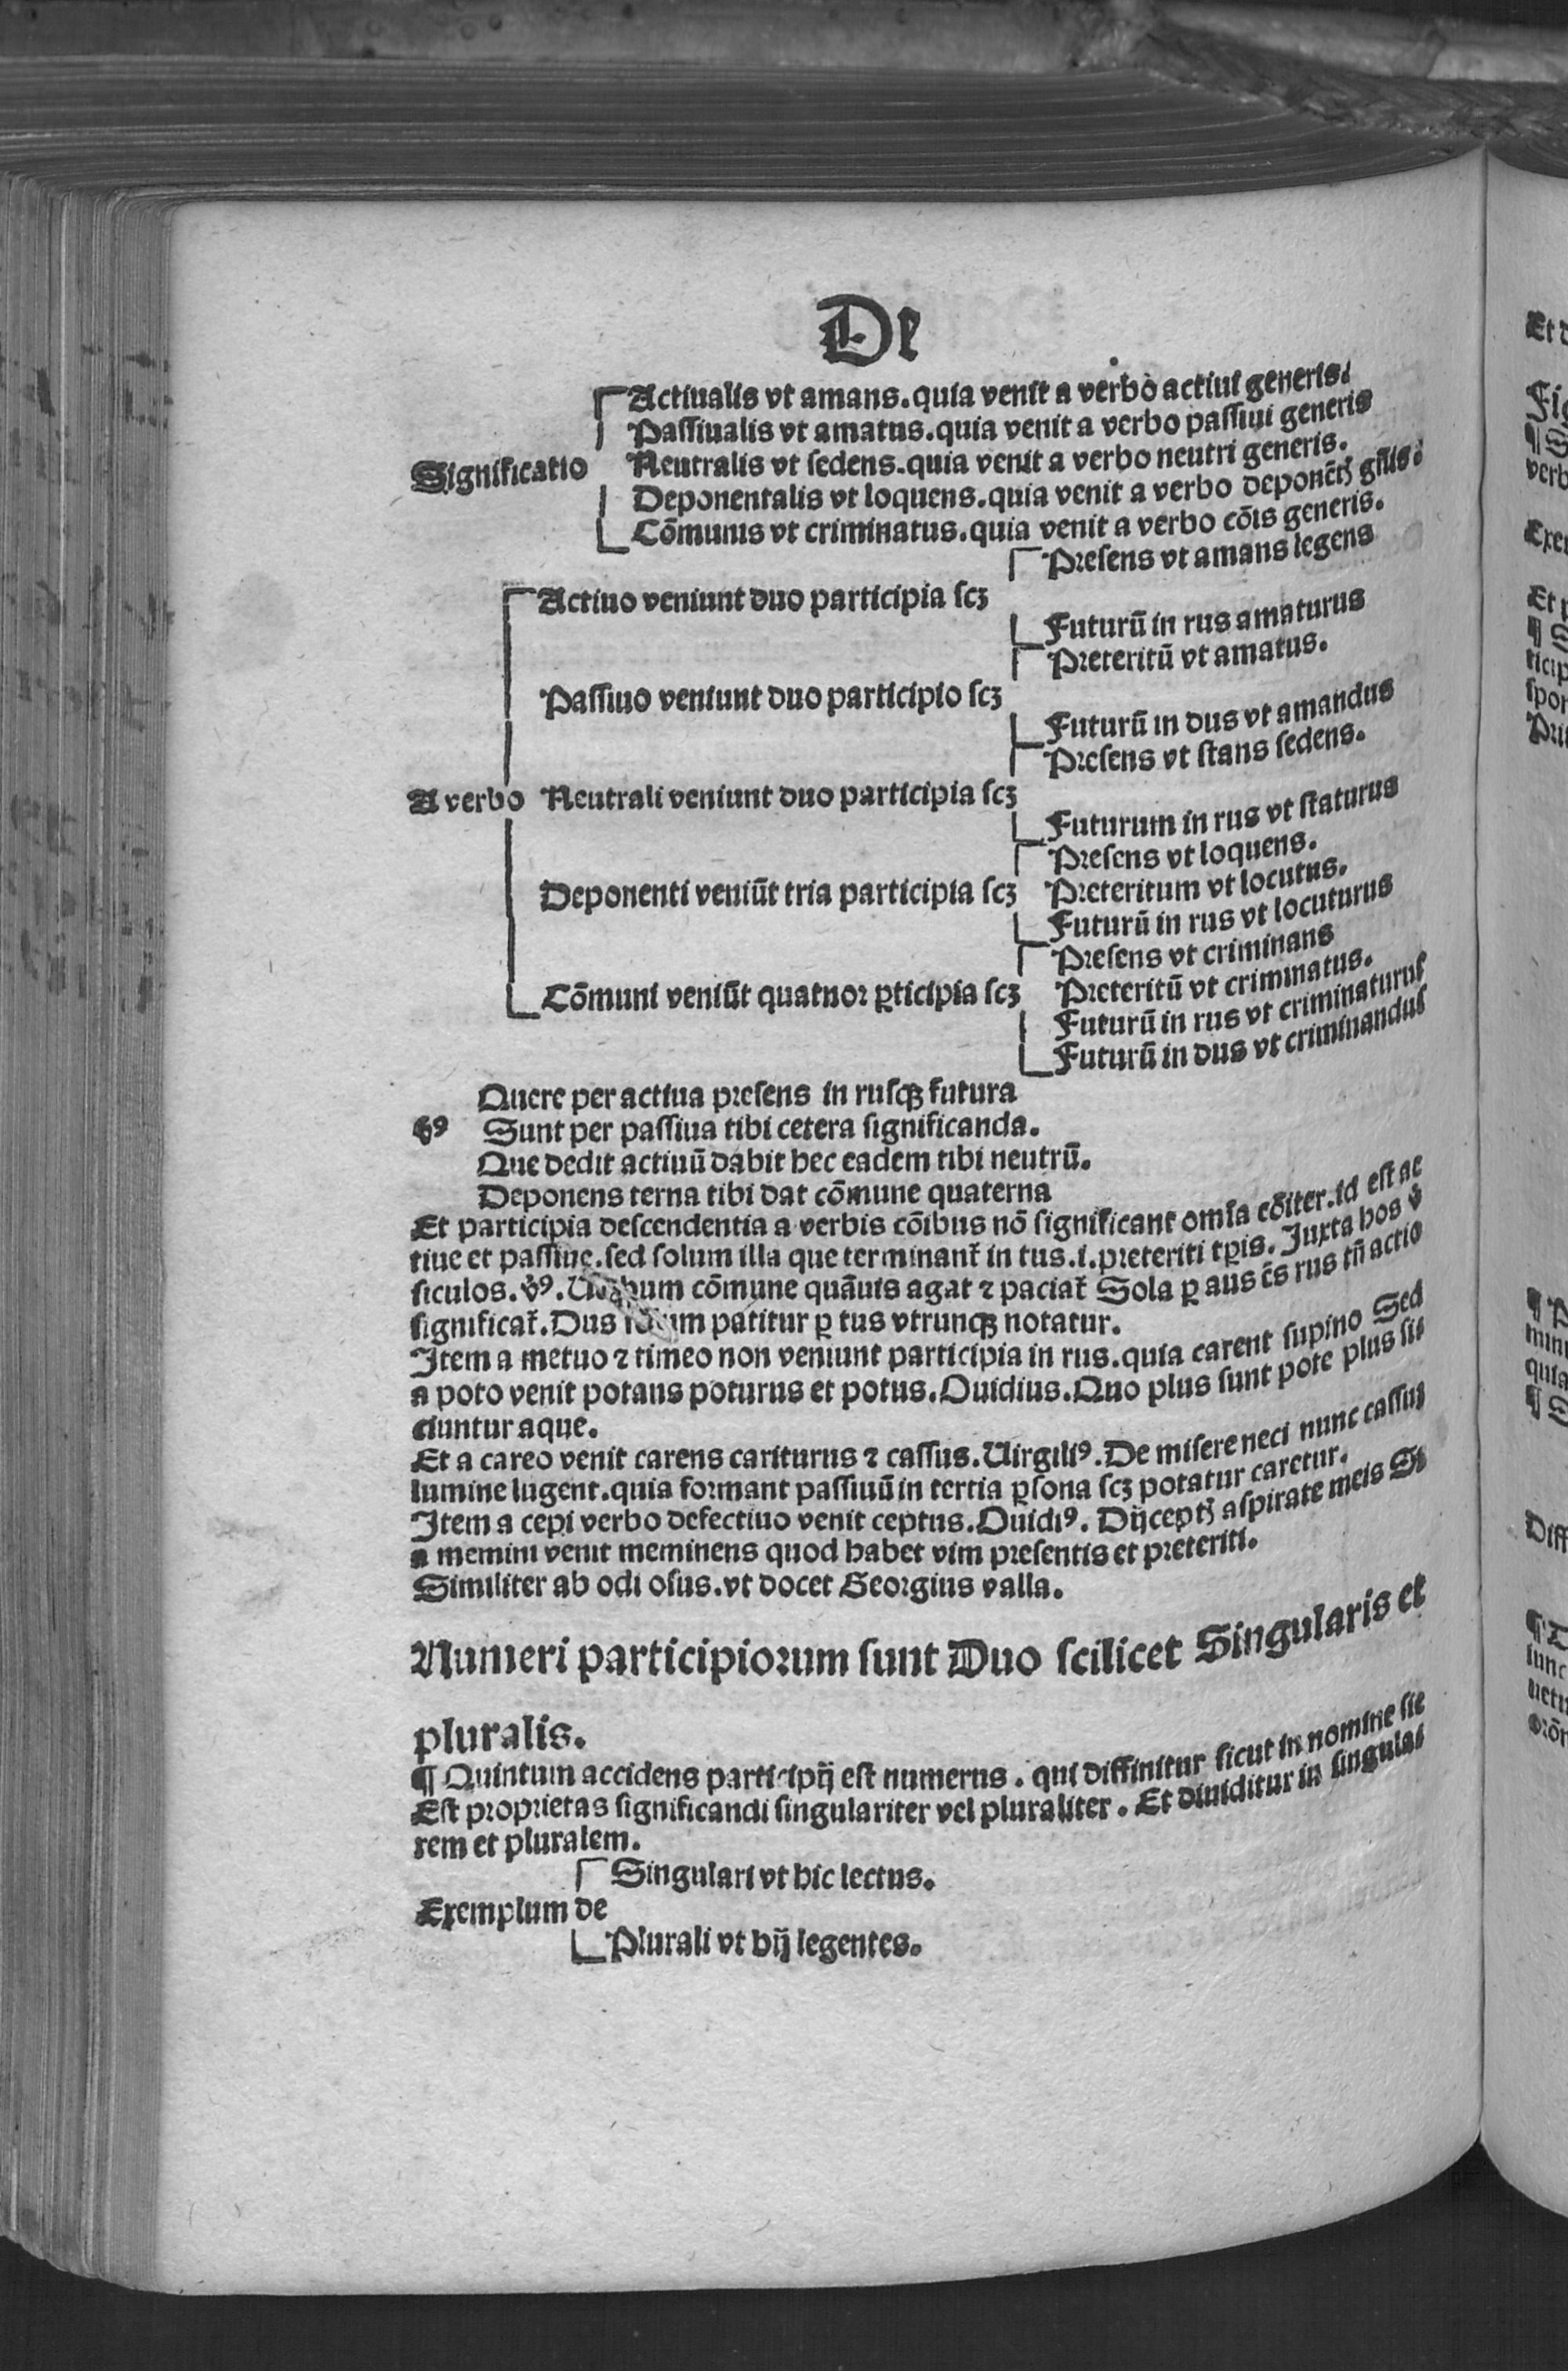 De
Actiualis vt amans.quia venit a verbo actiui generis.
Passiualis vt amatus.quia venit a verbo passiui generis
Significatio Neutralis vt sedens.quia venit a verbo neutri generis.
Deponentalis vt loquens.quia venit a verbo deponētꝭ gn̄is.
Cōmunis vt criminatus.quia venit a verbo cōis generis.
Presens vt amans legens
Actiuo veniunt duo participia scꝫ
Futurū in rus amaturus
Preteritū vt amatus.
Passiuo veniunt duo participio scꝫ
Futurū in dus vt amandus
Presens vt stans sedens.
A verbo Neutrali veniunt duo participia scꝫ
Futurum in rus vt staturus
Presens vt loquens.
Deponenti veniūt tria participia scꝫ Preteritum vt locutus.
Futurū in rus vt locuturus
Presens vt criminans
Cōmuni veniūt quatuor ꝑticipia scꝫ Preteritū vt criminatus.
Futurū in rus vt criminaturus
Futurū in dus vt criminandus
Quere per actiua presens in rusqꝫ futura
v̓ꝰ Sunt per passiua tibi cetera significanda.
Que dedit actiuū dabit hec eadem tibi neutrū.
Deponens terna tibi dat cōmune quaterna
Et participia descendentia a verbis cōibus nō significant omīa cōiter.id est ac
tiue et passiue.sed solum illa que terminant᷑ in tus.i.preteriti tꝑis. Juxta hos v̓
siculos.v̓ꝰ. cōmune quāuis agat ⁊ paciat᷑ Sola ꝑ aus ēs rus tn̄ actio
significat᷑.Dus patitur ꝑ tus vtrunqꝫ notatur.
Item a metuo ⁊ timeo non veniunt participia in rus.quia carent supino Sed
a poto venit potans poturus et potus.Ouidius.Quo plus sunt pote plus sit
ciuntur aque.
Et a careo venit carens cariturus ⁊ cassus.Uirgiliꝰ.De misere neci nunc cassuꝫ
lumine lugent.quia formant passiuū in tertia ꝑsona scꝫ potatur caretur.
Item a cepi verbo defectiuo venit ceptus.Ouidiꝰ. Dijceptꝭ aspirate meis Si
a memini venit meminens quod habet vim presentis et preteriti.
Similiter ab odi osus.vt docet Georgius valla.
Numeri participiorum sunt Duo scilicet Singularis et
pluralis.
¶ Quintum accidens participij est numerus . qui diffinitur sicut in nomine sic
Est proprietas significandi singulariter vel pluraliter . Et diuiditur in singula
rem et pluralem.
Singulari vt hic lectus.
Exemplum de
Plurali vt hij legentes.